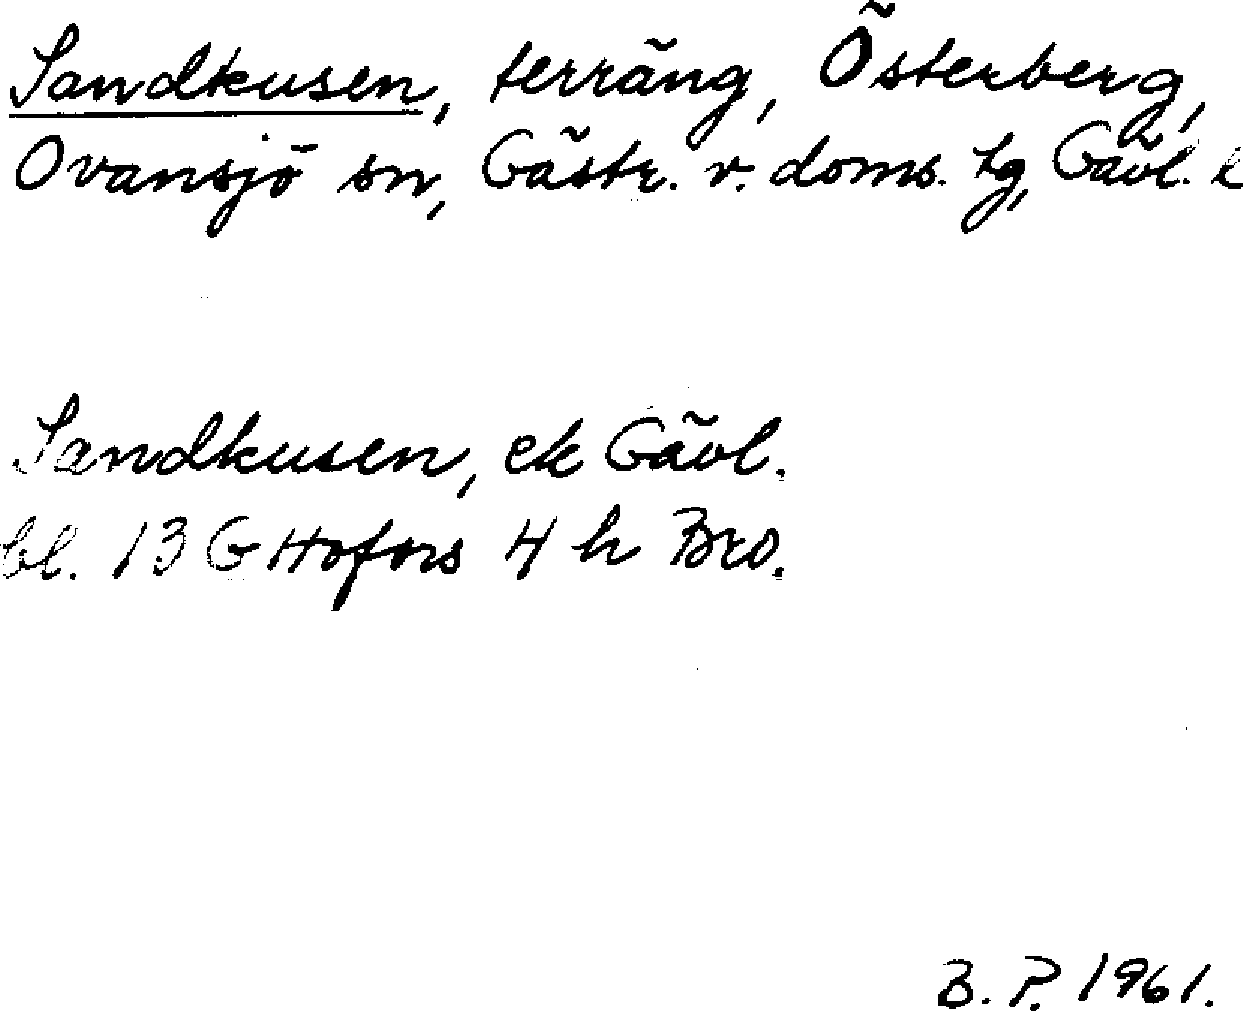 Sandkusen, terräng, Österberg,
Ovansjö sn, Gästr. v. doms. tg, Gävl. l
Sandkusen, ek Gävl.
bl. 13 G Hofors 4 h Bro.
B. P. 1961.